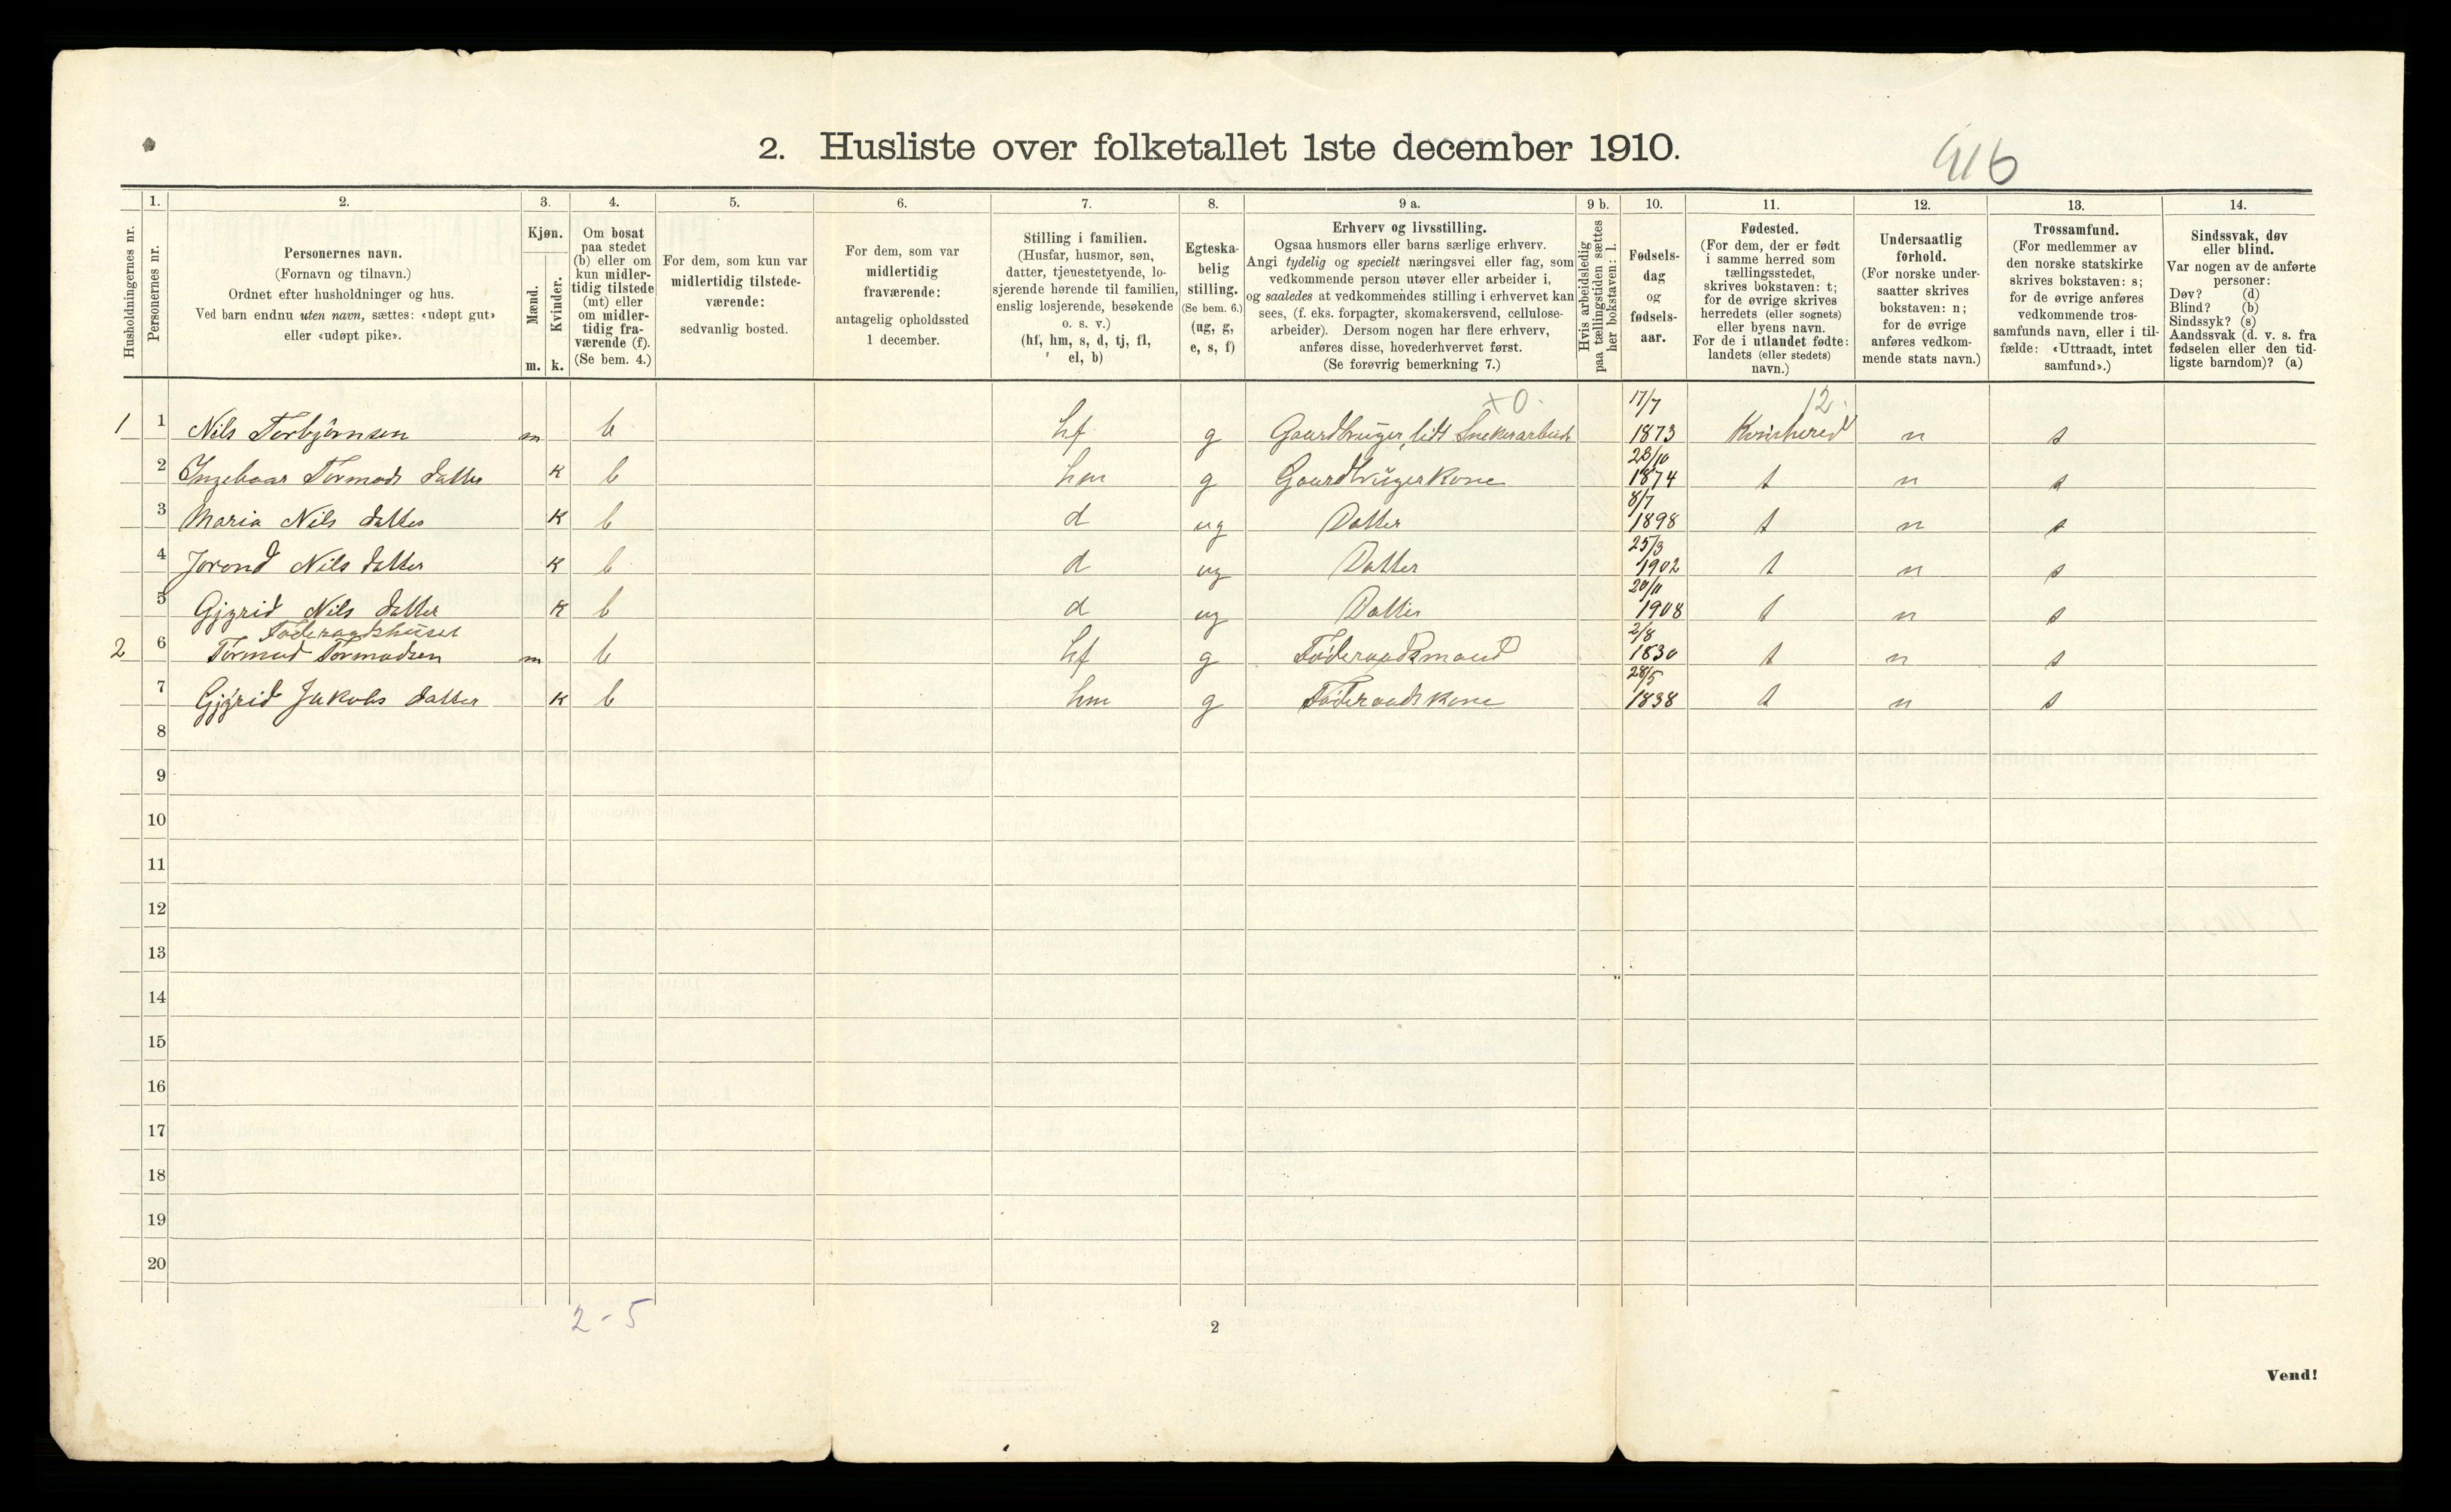 2. Husliste over folketallet 1ste december 1910.
416
Husholdningernes nr.
1.
Personernes nr.
2.
Personernes navn.
(Fornavn og tilnavn.)
Ordnet efter husholdninger og hus.
Ved barn endnu uten navn, sættes: «udøpt gut»
eller «udøpt pike».
3.
Kjøn.
Mænd.
Kvinder.
m. k.
4.
Om bosat
paa stedet
(b) eller om
kun midler-
tidig tilstede
(mt) eller
om midler-
tidig fra-
værende (f).
(Se bem. 4.)
5.
For dem, som kun var
midlertidig tilstede-
værende:
sedvanlig bosted.
6.
For dem, som var
midlertidig
fraværende:
antagelig opholdssted
1 december.
7.
Stilling i familien.
(Husfar, husmor, søn,
datter, tjenestetyende, lo-
sjerende hørende til familien,
enslig losjerende, besøkende
o. s. v.)
(hf, hm, s, d, tj, fl,
el, b)
8.
Egteska-
belig
stilling.
(Se bem. 6.)
(ug, g,
e, s, f)
9 a.
Erhverv og livsstilling.
Ogsaa husmors eller barns særlige erhverv.
Angi tydelig og specielt næringsvei eller fag, som
vedkommende person utøver eller arbeider i,
og saaledes at vedkommendes stilling i erhvervet kan
sees, (f. eks. forpagter, skomakersvend, cellulose-
arbeider). Dersom nogen har flere erhverv,
anføres disse, hovederhvervet først.
(Se forøvrig bemerkning 7.)
9 b.
Hvis arbeidsledig
paa tællingstiden sættes
her bokstaven: l.
10.
Fødsels-
dag
og
fødsels-
aar.
11.
Fødested.
(For dem, der er født
i samme herred som
tællingsstedet,
skrives bokstaven: t;
for de øvrige skrives
herredets (eller sognets)
eller byens navn.
For de i utlandet fødte:
landets (eller stedets)
navn.)
12.
Undersaatlig
forhold.
(For norske under-
saatter skrives
bokstaven: n;
for de øvrige
anføres vedkom-
mende stats navn.)
13.
Trossamfund.
(For medlemmer av
den norske statskirke
skrives bokstaven: s;
for de øvrige anføres
vedkommende tros-
samfunds navn, eller i til-
fælde: «Uttraadt, intet
samfund».)
14.
Sindssvak, døv
eller blind.
Var nogen av de anførte
personer:
Døv? (d)
Blind? (b)
Sindssyk? (s)
Aandssvak (d. v. s. fra
fødselen eller den tid-
ligste barndom)? (a)
x0. 17/7 12.
1 1 Nils Torbjörnsen m b hf g Gaardbruger, lidt Snekerarbeid 1873 Kvinherred n s
28/10
2 Ingeboar Tormods datter k b hm g Gaardbrugerkone 1874 t n s
8/7
3 Maria Nils datter k b d ug Datter 1898 t n s
25/3
4 Jorond Nils datter k b d ug Datter 1902 t n s
20/11
5 Gjyrid Nils datter k b d ug Datter 1908 t n s
Föderaadshuset 2/8
2 6 Tormod Tormodsen m b hf g Föderaadsmand 1830 t n s
28/5
7 Gjyrid Jakobs datter k b hm g Föderaadskone 1838 t n s
8
9
10
11
12
13
14
15
16
17
18
19
20
2-5
2
Vend!